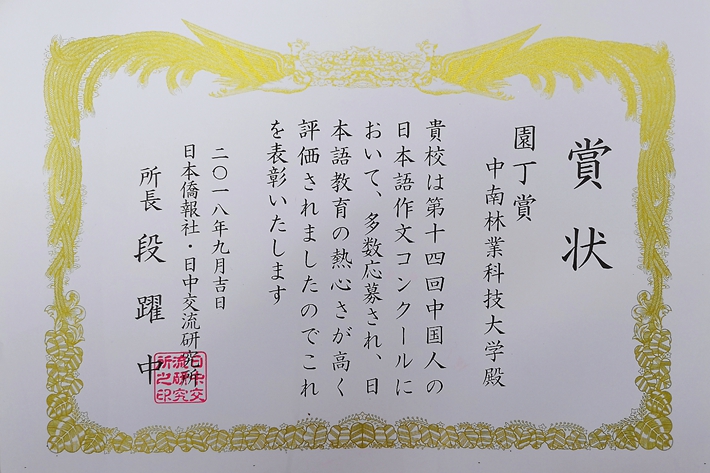 賞状
園丁賞
中南林業科技大学殿
貴校は第十四回中国人の
日本語作文コンクールに
おいて、多数応募され、日
本語教育の熱心さが高く
評価されましたのでこれ
を表彰いたします
二〇一八年九月吉日
日本僑報社・日中交流研究所
所長 段躍中
日中交
流研究
所之印